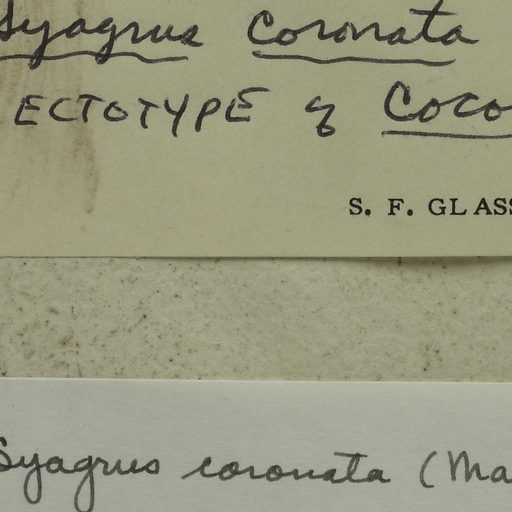 Syagrus coronata
ECTOTYPE of Coco
S. F. GLASS
Syagrus coronata (Ma